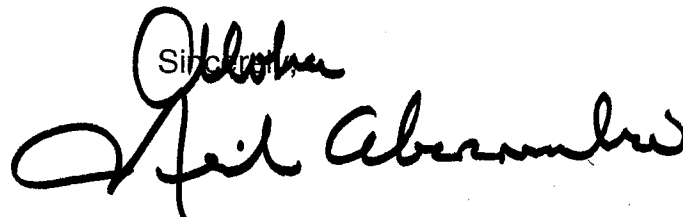 Sincerely,
Aloha
Neil Abercrombie